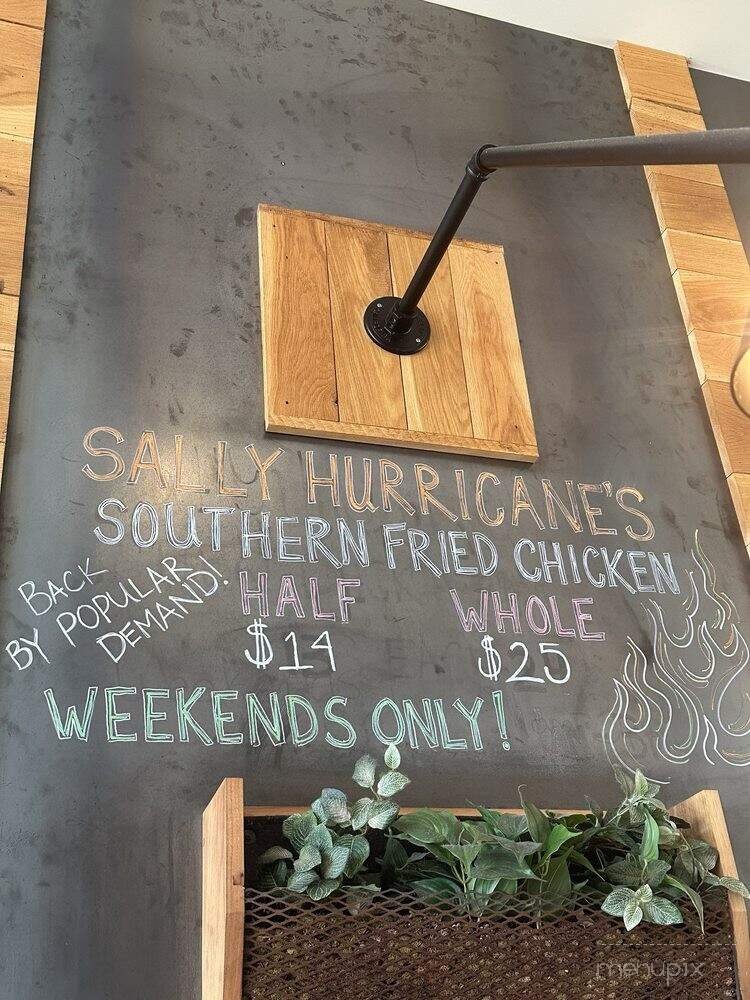 SALLY HURRICANE'S
SOUTHERN FRIED CHICKEN
BACK
BY POPULAR
DEMAND!
HALF
$14
WHOLE
$25
WEEKENDS ONLY!
menupix